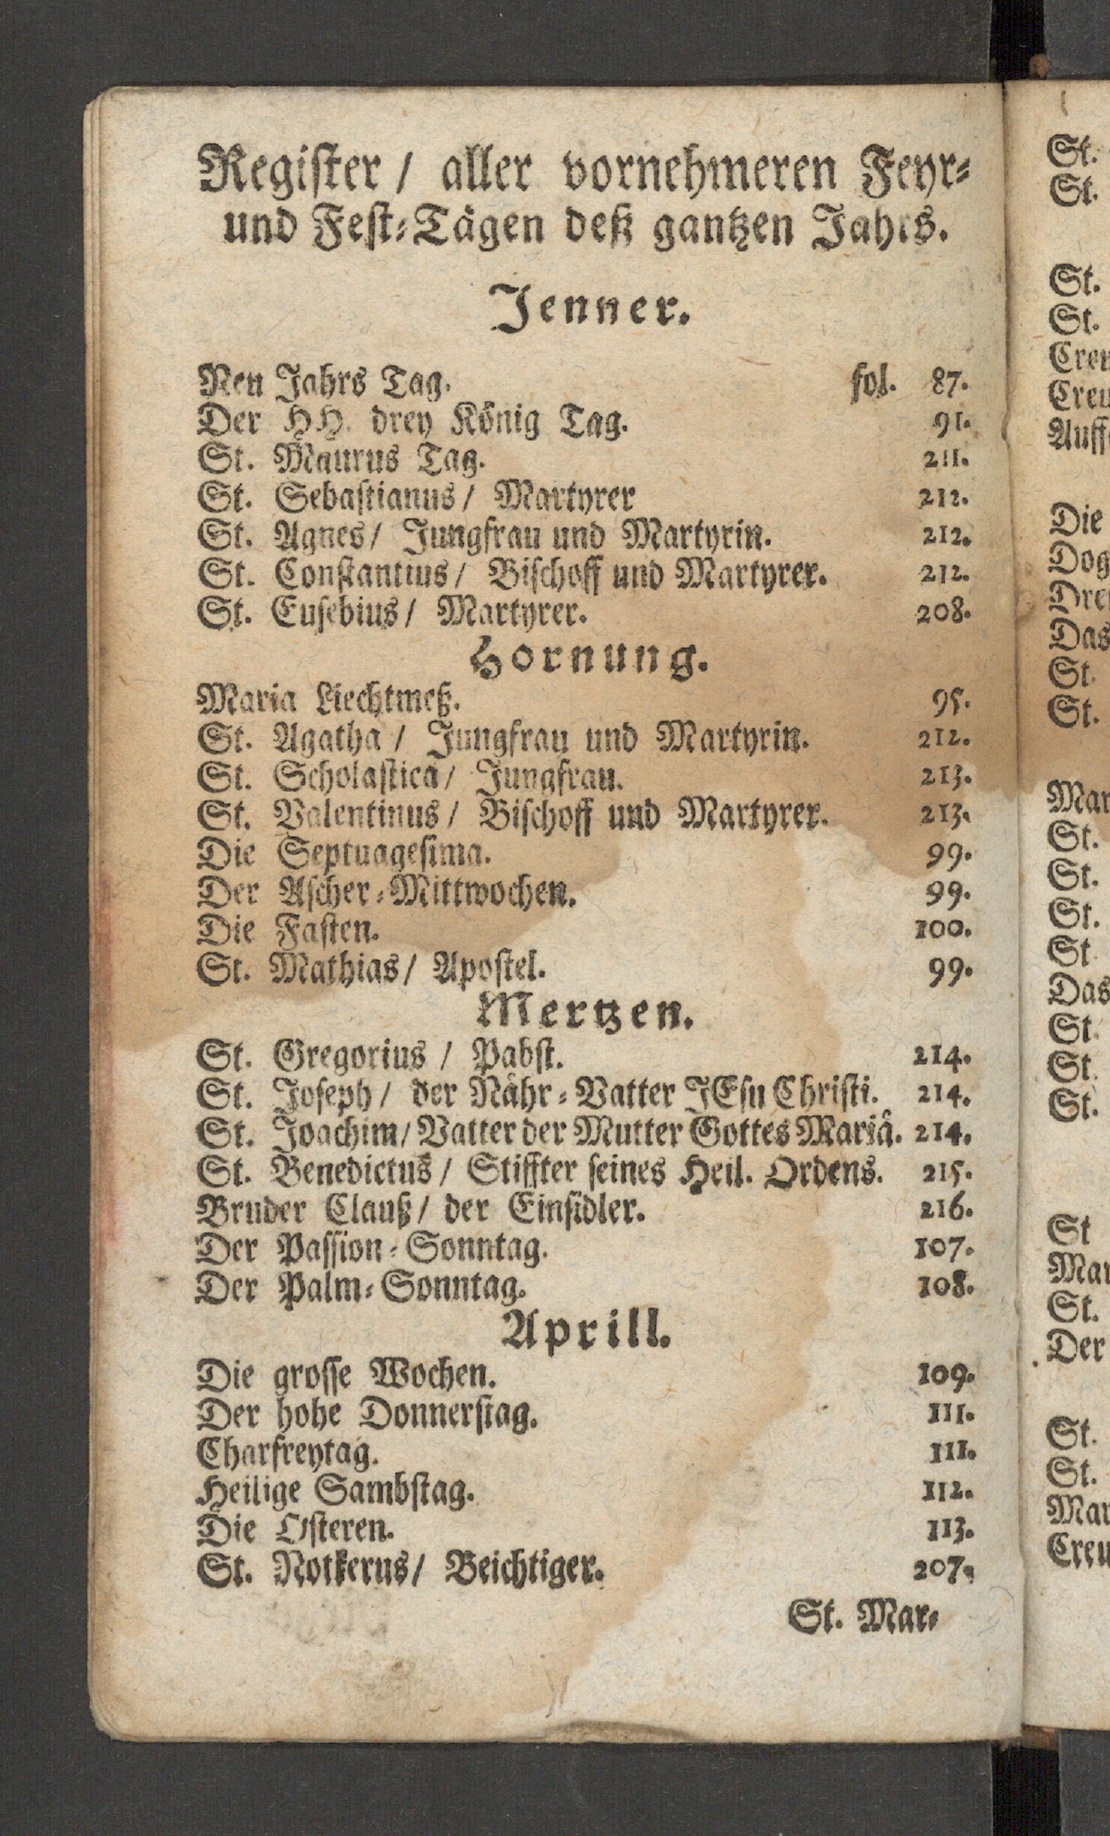 Register / aller vornehmeren Feyr-
und Fest-Tägen deß gantzen Jahrs.
Jenner.
Neu Jahrs Tag. fol. 87.
Der HH. drey König Tag. 91.
St. Maurus Tag. 211.
St. Sebastianus / Martyrer 212.
St. Agnes / Jungfrau und Martyrin. 212.
St. Constantius / Bischoff und Martyrer. 212.
St. Eusebius / Martyrer. 208.
Hornung.
Maria Liechtmeß. 95.
St. Agatha / Jungfrau und Martyrin. 212.
St. Scholastica / Jungfrau. 213.
St. Valentinus / Bischoff und Martyrer. 213.
Die Septuagesima. 99.
Der Ascher-Mittwochen. 99.
Die Fasten. 100.
St. Mathias / Apostel. 99.
Mertzen.
St. Gregorius / Pabst. 214.
St. Joseph / der Nähr-Vatter JEsu Christi. 214.
St. Joachim / Vatter der Mutter Gottes Mariä. 214.
St. Benedictus / Stiffter seines Heil. Ordens. 215.
Bruder Clauß / der Einsidler. 216.
Der Passion-Sonntag. 107.
Der Palm-Sonntag. 108.
Aprill.
Die grosse Wochen. 109.
Der hohe Donnerstag. 111.
Charfreytag. 111.
Heilige Sambstag. 112.
Die Osteren. 113.
St. Notkerus / Beichtiger. 207.
St. Mar-
St.
St.
St.
St.
Creu
Auff
Die
Das
St.
St.
St.
St.
St.
St
Das
St.
St.
St.
St
St.
Der
St.
St.
Creu